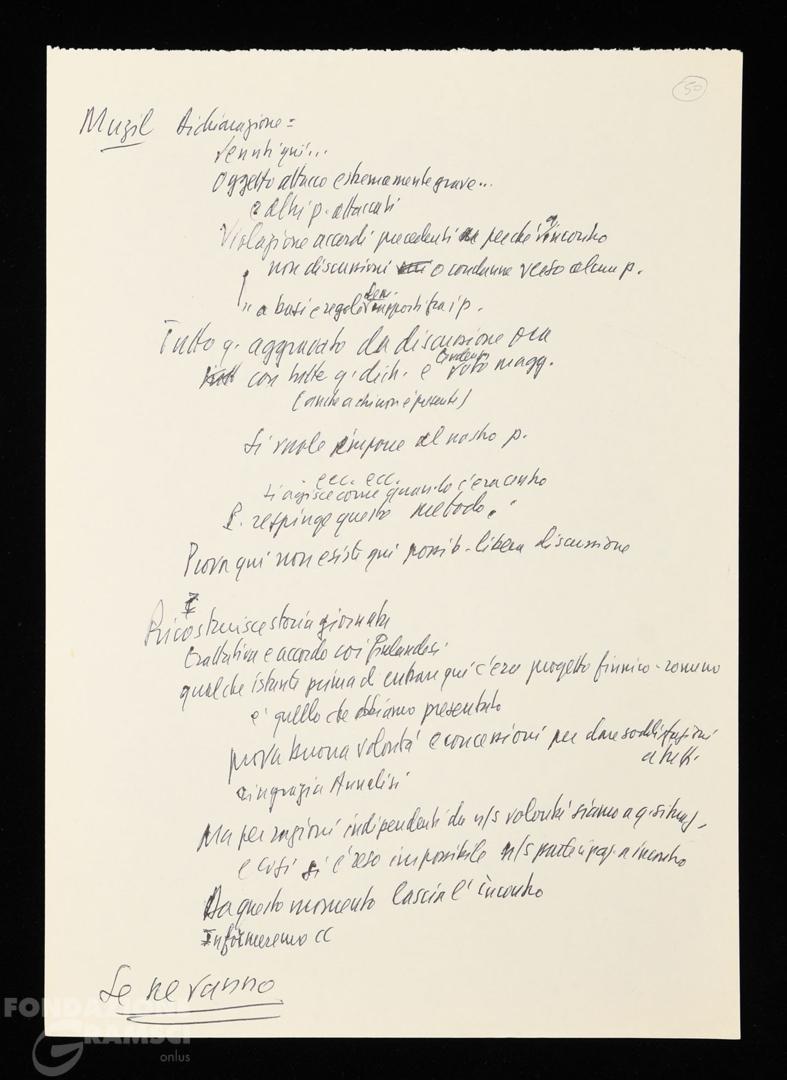 50
Muzil Dichiarazione =
Venuti qui...
Oggetto attacco estremamente grave...
e altri p. attaccati
Violazione accordi precedenti perché q. incontro
non discussioni o condanne verso alcun p.
" a basi e regole gen. rapporti fra i p.
Tutto q. aggravato da discussione ora
con tutte q. dich. e tendenza voto magg.
(anche a chi non è presente)
Si vuole imporre al nostro p.
ecc. ecc.
si agisce come quando c'era contro
P. respinge questo metodo.
Prova qui non esiste qui possib. libera discussione
Ricostruisce storia giornata
trattativa e accordo coi Finlandesi
qualche istante prima di entrare qui c'era progetto finnico-romeno
e' quello che abbiamo presentato
prova buona volontà e concessioni per dare soddisfazioni
a tutti.
ringrazia Annalisi
Ma per ragioni indipendenti da n/s volontà siamo a q. situaz.
e così si è reso impossibile n/s partecipaz. a incontro
Da questo momento lascia l'incontro
Informeremo CC
Se ne vanno
FONDAZIONE
GRAMSCI
onlus